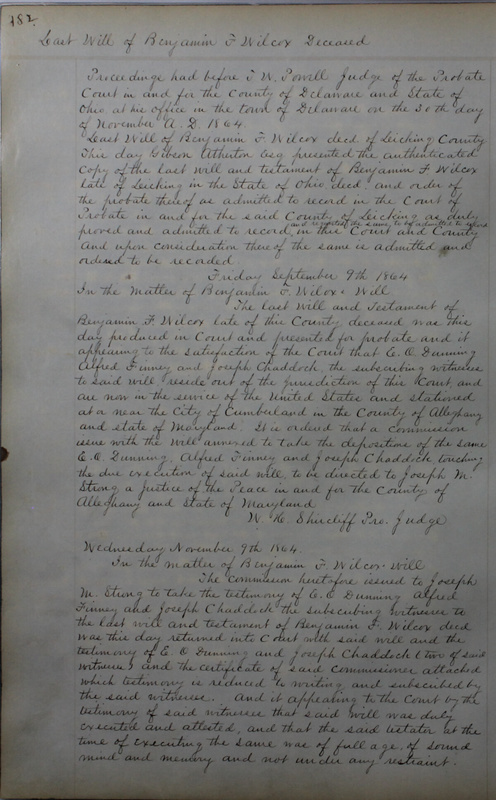 182.
Last Will of Benjamin F Wilcox Deceased
Proceedings had before T. W. Powell Judge of the Probate
Court in and for the County of Delaware and State of
Ohio, at his office in the town of Delaware on the 30th day
of November A. D. 1864.
Last Will of Benjamin F. Wilcox decd. of Leicking County
This day Gibson Atherton Esq presented the authenticated
Copy of the last Will and testament of Benjamin F Wilcox
late of Leicking in the State of Ohio, decd. and order of
the probate thereof as admitted to record in the Court of
Probate in and for the said County of Leicking as duly
and requested the same, to be admitted to record
proved and admitted to record, in this Court and County
And upon consideration thereof the same is admitted and
ordered to be recorded
Friday September 9th 1864
In the Matter of Benjamin F. Wilcox Will
The last Will and Testament of
Benjamin F. Wilcox late of this County deceased was this
day produced in Court and presented for probate and it
appearing to the satisfaction of the Court that E. O. Dunning
Alfred Finney and Joseph Chaddock, the subscribing witnesses
to said will reside out of the jurisdiction of this Court and
are now in the service of the United States and stationed
at or near the City of Cumberland in the County of Alleghany
and state of Maryland. It is ordered that a Commission
issue with the will annexed to take the depositions of the same
E. O. Dunning, Alfred Finney and Joseph Chaddock touching
the due execution of said will, to be directed to Joseph M.
Strong a Justice of the Peace in and for the County of
Alleghany and State of Maryland
W. H. Shircliff Pro. Judge
Wednesday November 9th 1864.
In the matter of Benjamin F. Wilcox. Will
The commission heretofore issued to Joseph
M. Strong to take the testimony of E. O Dunning Alfred
Finney and Joseph Chaddock the subscribing witnesses to
the last will and testament of Benjamin F. Wilcox decd
was this day returned into Court with said will and the
testimony of E O Dunning and Joseph Chaddock (two of said
witnesses) and the certificate of said Commissioner attached
which testimony is reduced to writing and subscribed by
the said witnesses. And it appearing to the Court by the
testimony of said witnesses that said will was duly
executed and attested, and that the said testator at the
time of executing the same was of full age, of sound
mind and memory and not under any restraint.